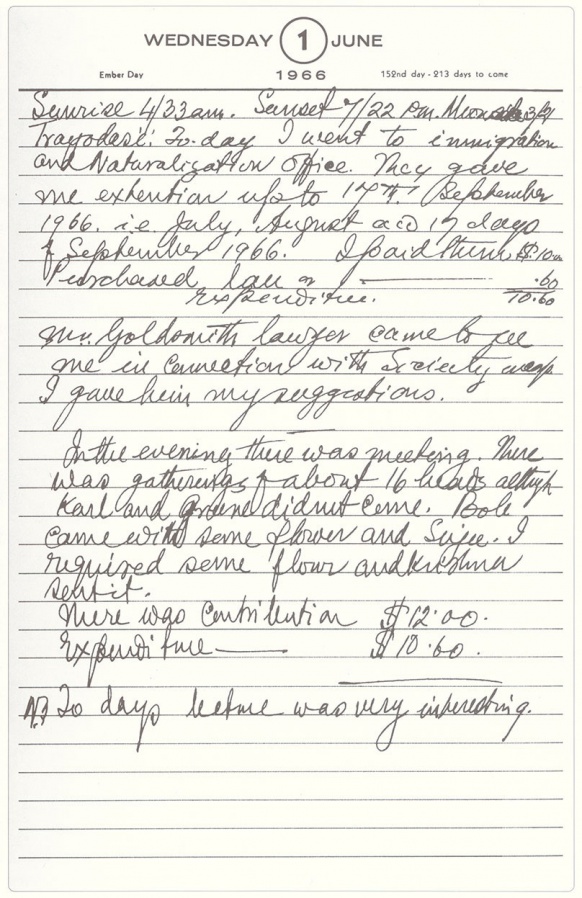 WEDNESDAY 1 JUNE
Ember Day 1966 152nd day - 213 days to come
Sunrise 4/33 am. Sunset 7/22 Pm. Moon
Trayodasi: To-day I went to immigration
and Naturalization office. They gave
me extention upto 17th. September
1966. i.e. July, August and 17 days
of September 1966. I paid them $10.00
Purchased .60
Expenditure. 10.60
Mr. Goldsmith lawyer came to see
me in connection with Society
I gave him my suggestions.
In the evening there was meeting. There
was gatherings of about 16 heads
Karl and didnt come. Bob
came with some flower and Sujee. I
required some flour and Krishna
sent it.
There was contribution $12.00.
Expenditure $10.60.
N.B To days lecture was very interesting.